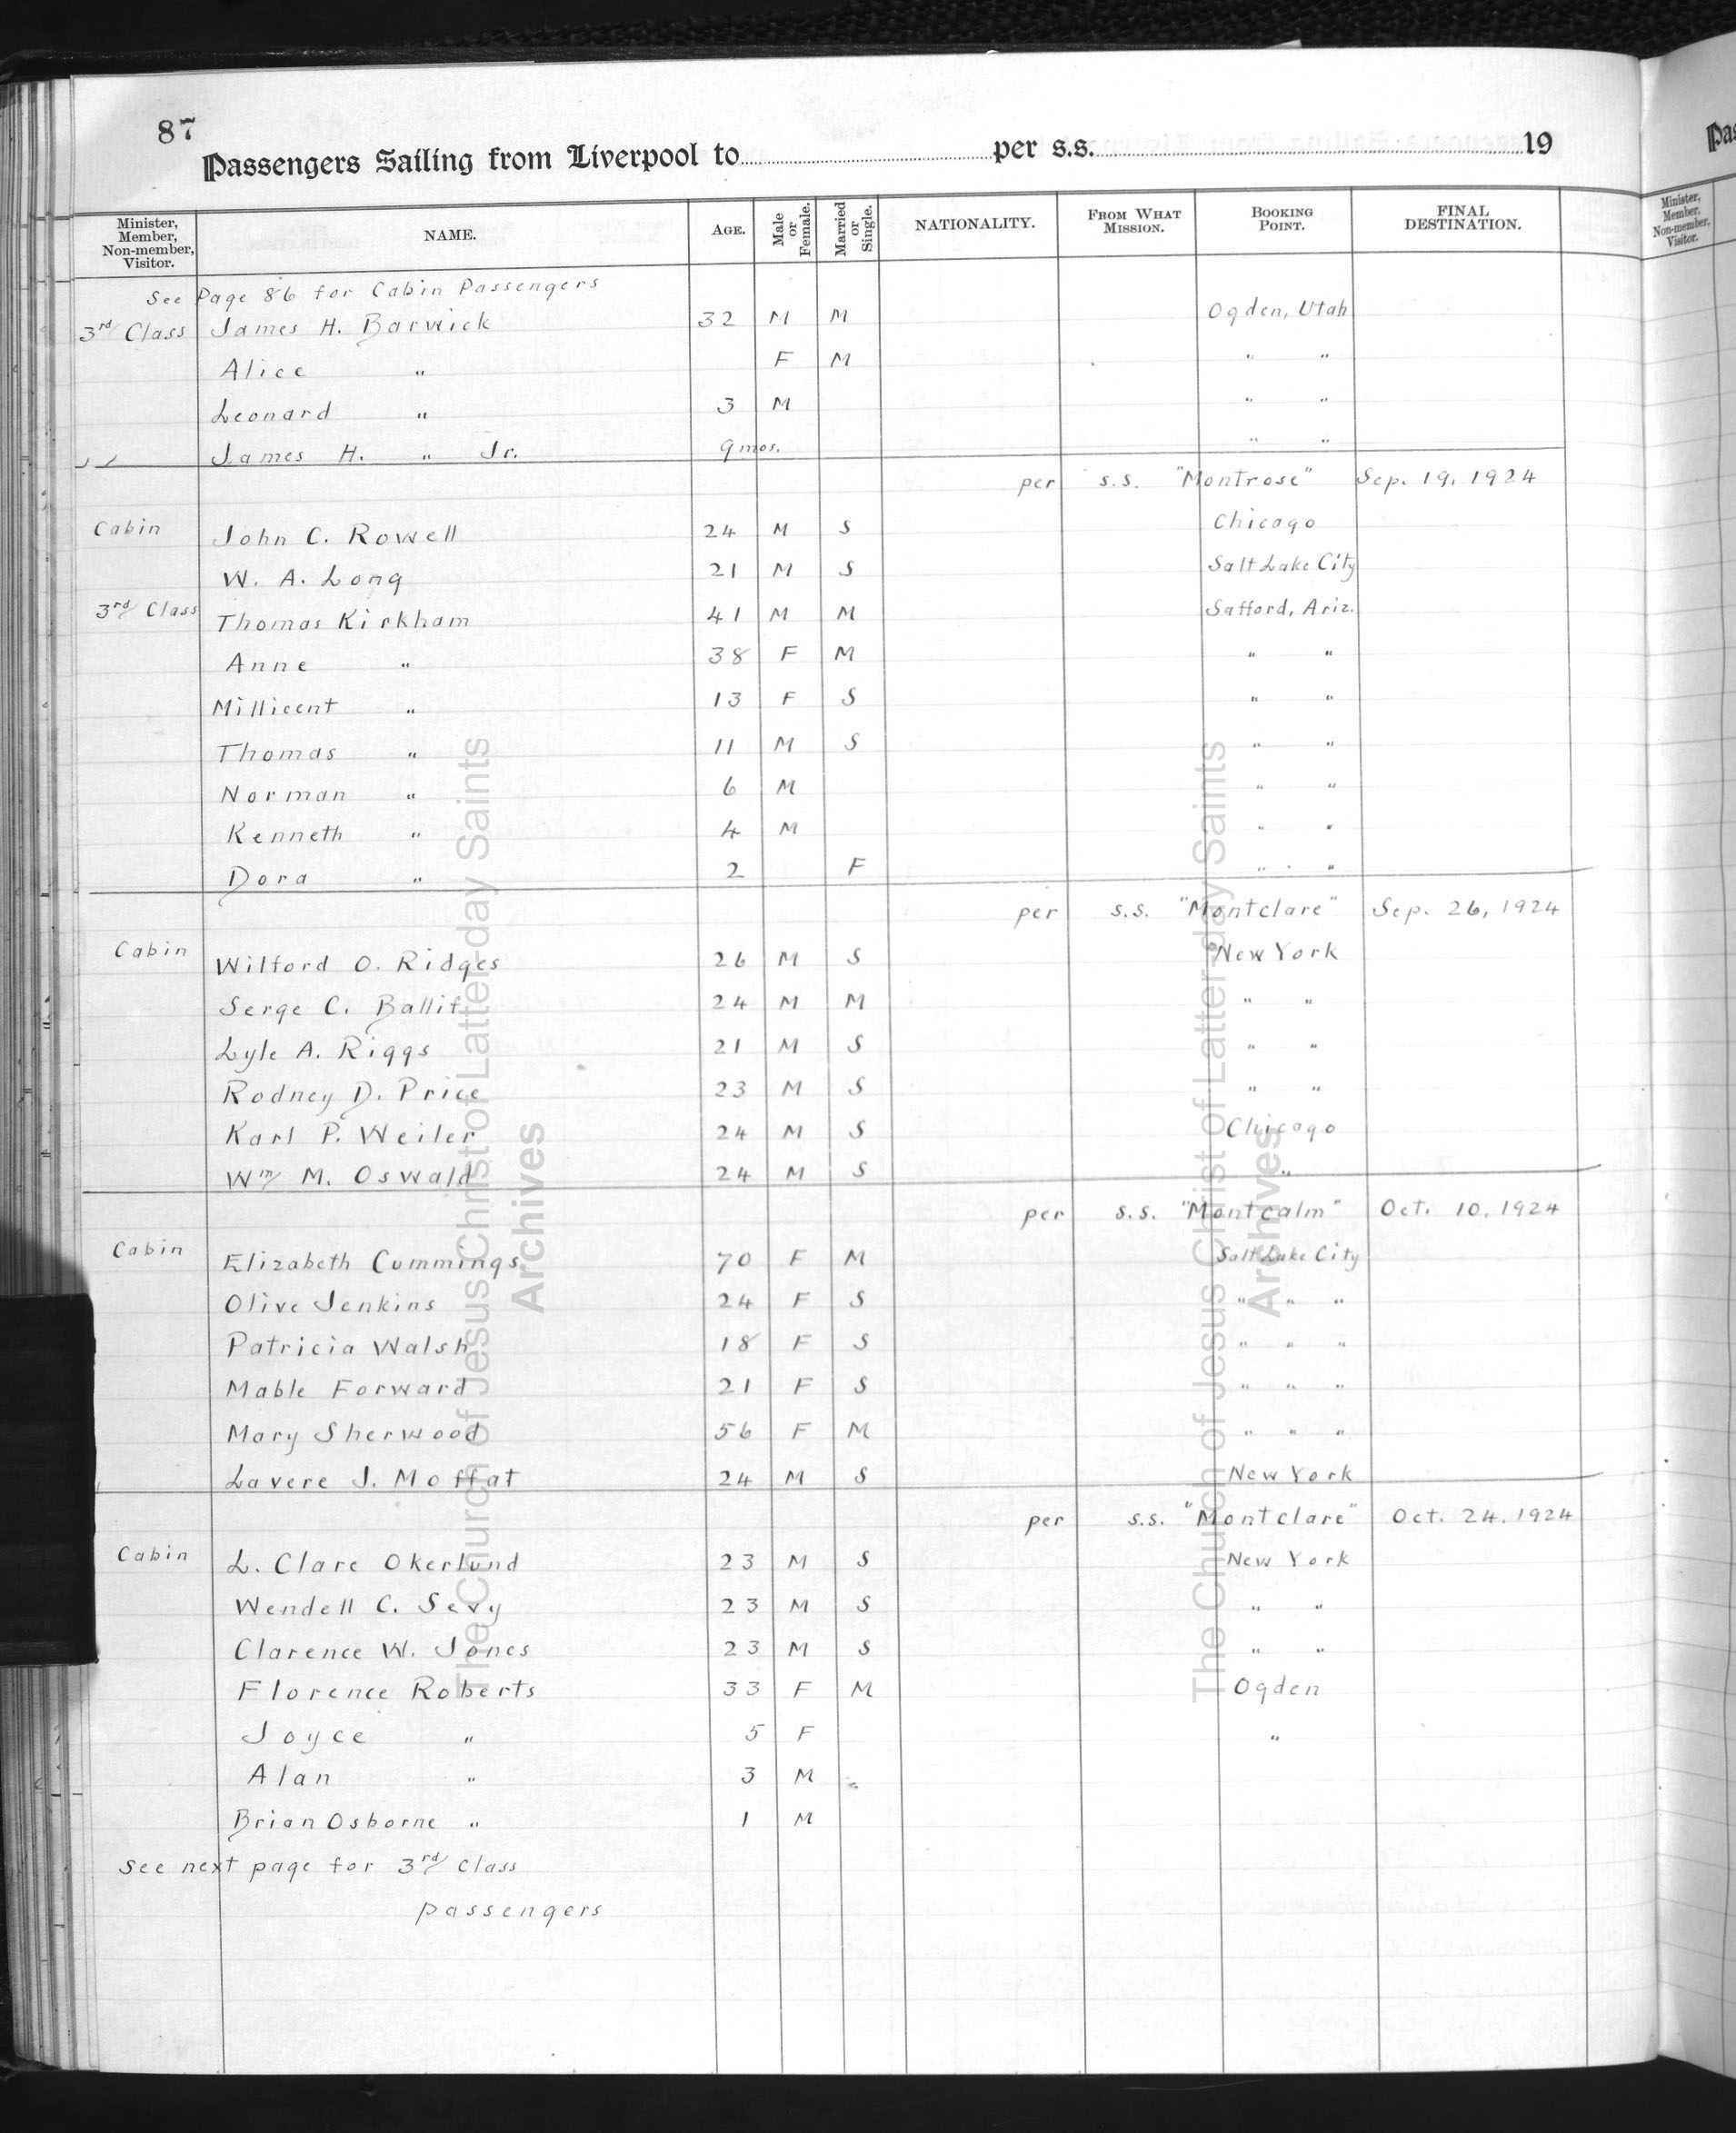 87
Passengers Sailing from Liverpool to per s.s. 19
Minister, Member, Non-member, Visitor. NAME. AGE. Male or Female. Married or Single. NATIONALITY. FROM WHAT MISSION. BOOKING POINT. FINAL DESTINATION.
See Page 86 for Cabin Passengers
3rd Class James H. Barwick 32 M M Ogden, Utah
Alice " F M " "
Leonard " 3 M " "
James H. " Jr. 9 mos. " "
per s.s. "Montrose" Sep. 19, 1924
Cabin John C. Rowell 24 M S Chicago
W. A. Long 21 M S Salt Lake City
3rd Class Thomas Kirkham 41 M M Safford, Ariz.
Anne " 38 F M " "
Millicent " 13 F S " "
Thomas " 11 M S " "
Norman " 6 M " "
Kenneth " 4 M " "
Dora " 2 F " "
per s.s. "Montclare" Sep. 26, 1924
Cabin Wilford O. Ridges 26 M S New York
Serge C. Ballif 24 M M " "
Lyle A. Riggs 21 M S " "
Rodney D. Price 23 M S " "
Karl P. Weiler 24 M S Chicago
Wm M. Oswald 24 M S "
per s.s. "Montcalm" Oct. 10, 1924
Cabin Elizabeth Cummings 70 F M Salt Lake City
Olive Jenkins 24 F S " " "
Patricia Walsh 18 F S " " "
Mable Forward 21 F S " " "
Mary Sherwood 56 F M " " "
Lavere J. Moffat 24 M S New York
per s.s. "Montclare" Oct. 24, 1924
Cabin L. Clare Okerlund 23 M S New York
Wendell C. Sevy 23 M S " "
Clarence W. Jones 23 M S " "
Florence Roberts 33 F M Ogden
Joyce " 5 F "
Alan " 3 M
Brian Osborne " 1 M
See next page for 3rd Class
passengers
The Church of Jesus Christ of Latter-day Saints
Archives
The Church of Jesus Christ of Latter-day Saints
Archives
Pas
Minister, Member, Non-member, Visitor.